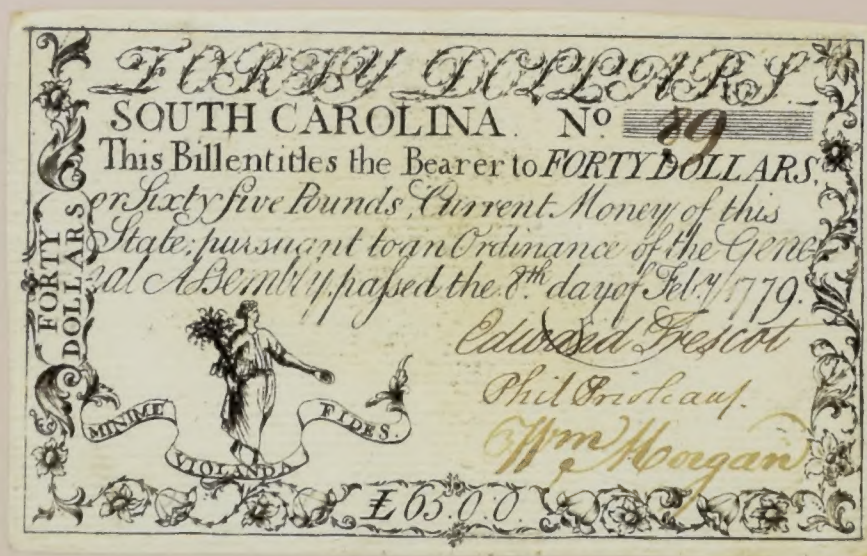 FORTY DOLLARS.
SOUTH CAROLINA. No 89
This Bill entitles the Bearer to FORTY DOLLARS,
or Sixty five Pounds, Current Money of this
State; pursuant to an Ordinance of the Gene-
ral Assembly, passed the 8th day of Feb.y 1779.
FORTY
DOLLARS
Edward Trescot
Phil Prioleau
Wm Morgan
MINIME
VIOLANDA
FIDES.
£65.0.0